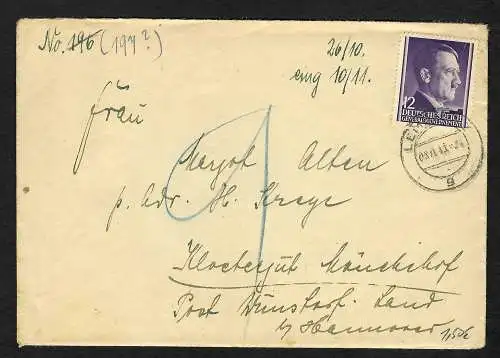 No. 196 (197?)
26/10.
eing 10/11.
12
DEUTSCHES REICH
GENERALGOUVERNEMENT
Frau
Margot Alten
p. Adr. H. Kreye
Klostergut Mönchehof
Post Wunstorf-Land
b/ Hannover
g